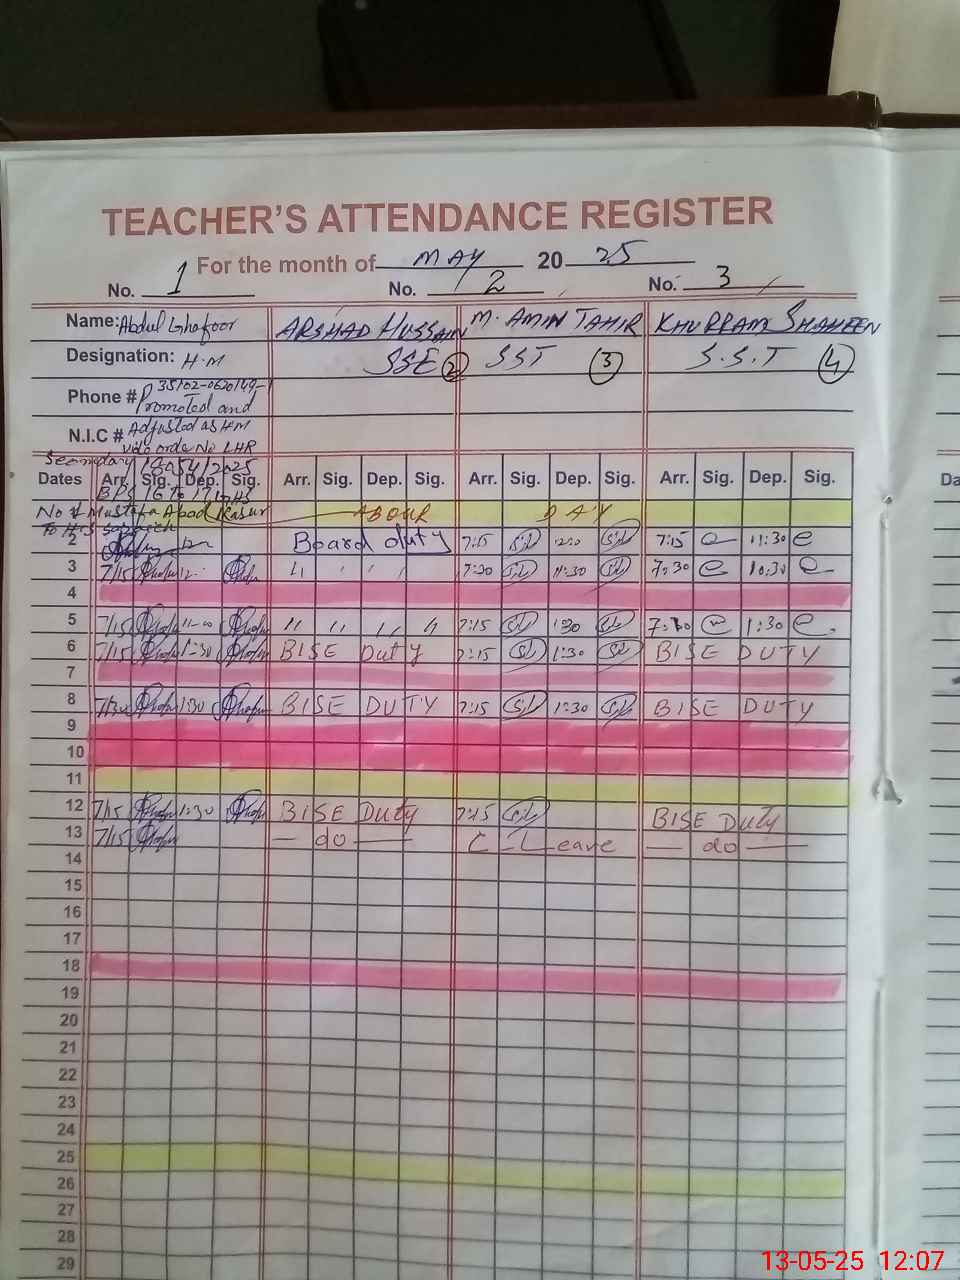 TEACHER'S ATTENDANCE REGISTER
For the month of MAY 2025
No. 1 No. 2 No. 3
Name: Abdul Ghafoor ARSHAD HUSSAIN M. AMIN TAHIR KHURRAM SHAHEEN
Designation: H.M SSE 2 SST 3 S.S.T 4
Phone # 35102-0620149-1
Promoted and
N.I.C # Adjusted as HM
vide order No LHR
Secondary
Dates Arr. Sig. Dep. Sig. Arr. Sig. Dep. Sig. Arr. Sig. Dep. Sig. Arr. Sig. Dep. Sig.
BPS 16 To 17
Mustafa Abad Kasur LABOUR DAY
2 Board duty 7:15 7:15 11:30
3 7/15 7:30 11:30 7:30 10:30
4
5 7/15 11-00 7:15 1:30 1:30
6 7/15 1:30 BISE Duty 7:15 1:30 BISE DUTY
7
8 7/30 1:30 BISE DUTY 7:15 1:30 BISE DUTY
9
10
11
12 7/15 1:30 BISE Duty 7:15 BISE Duty
13 7/15 — do — C-Leave — do —
14
15
16
17
18
19
20
21
22
23
24
25
26
27
28
29
13-05-25 12:07